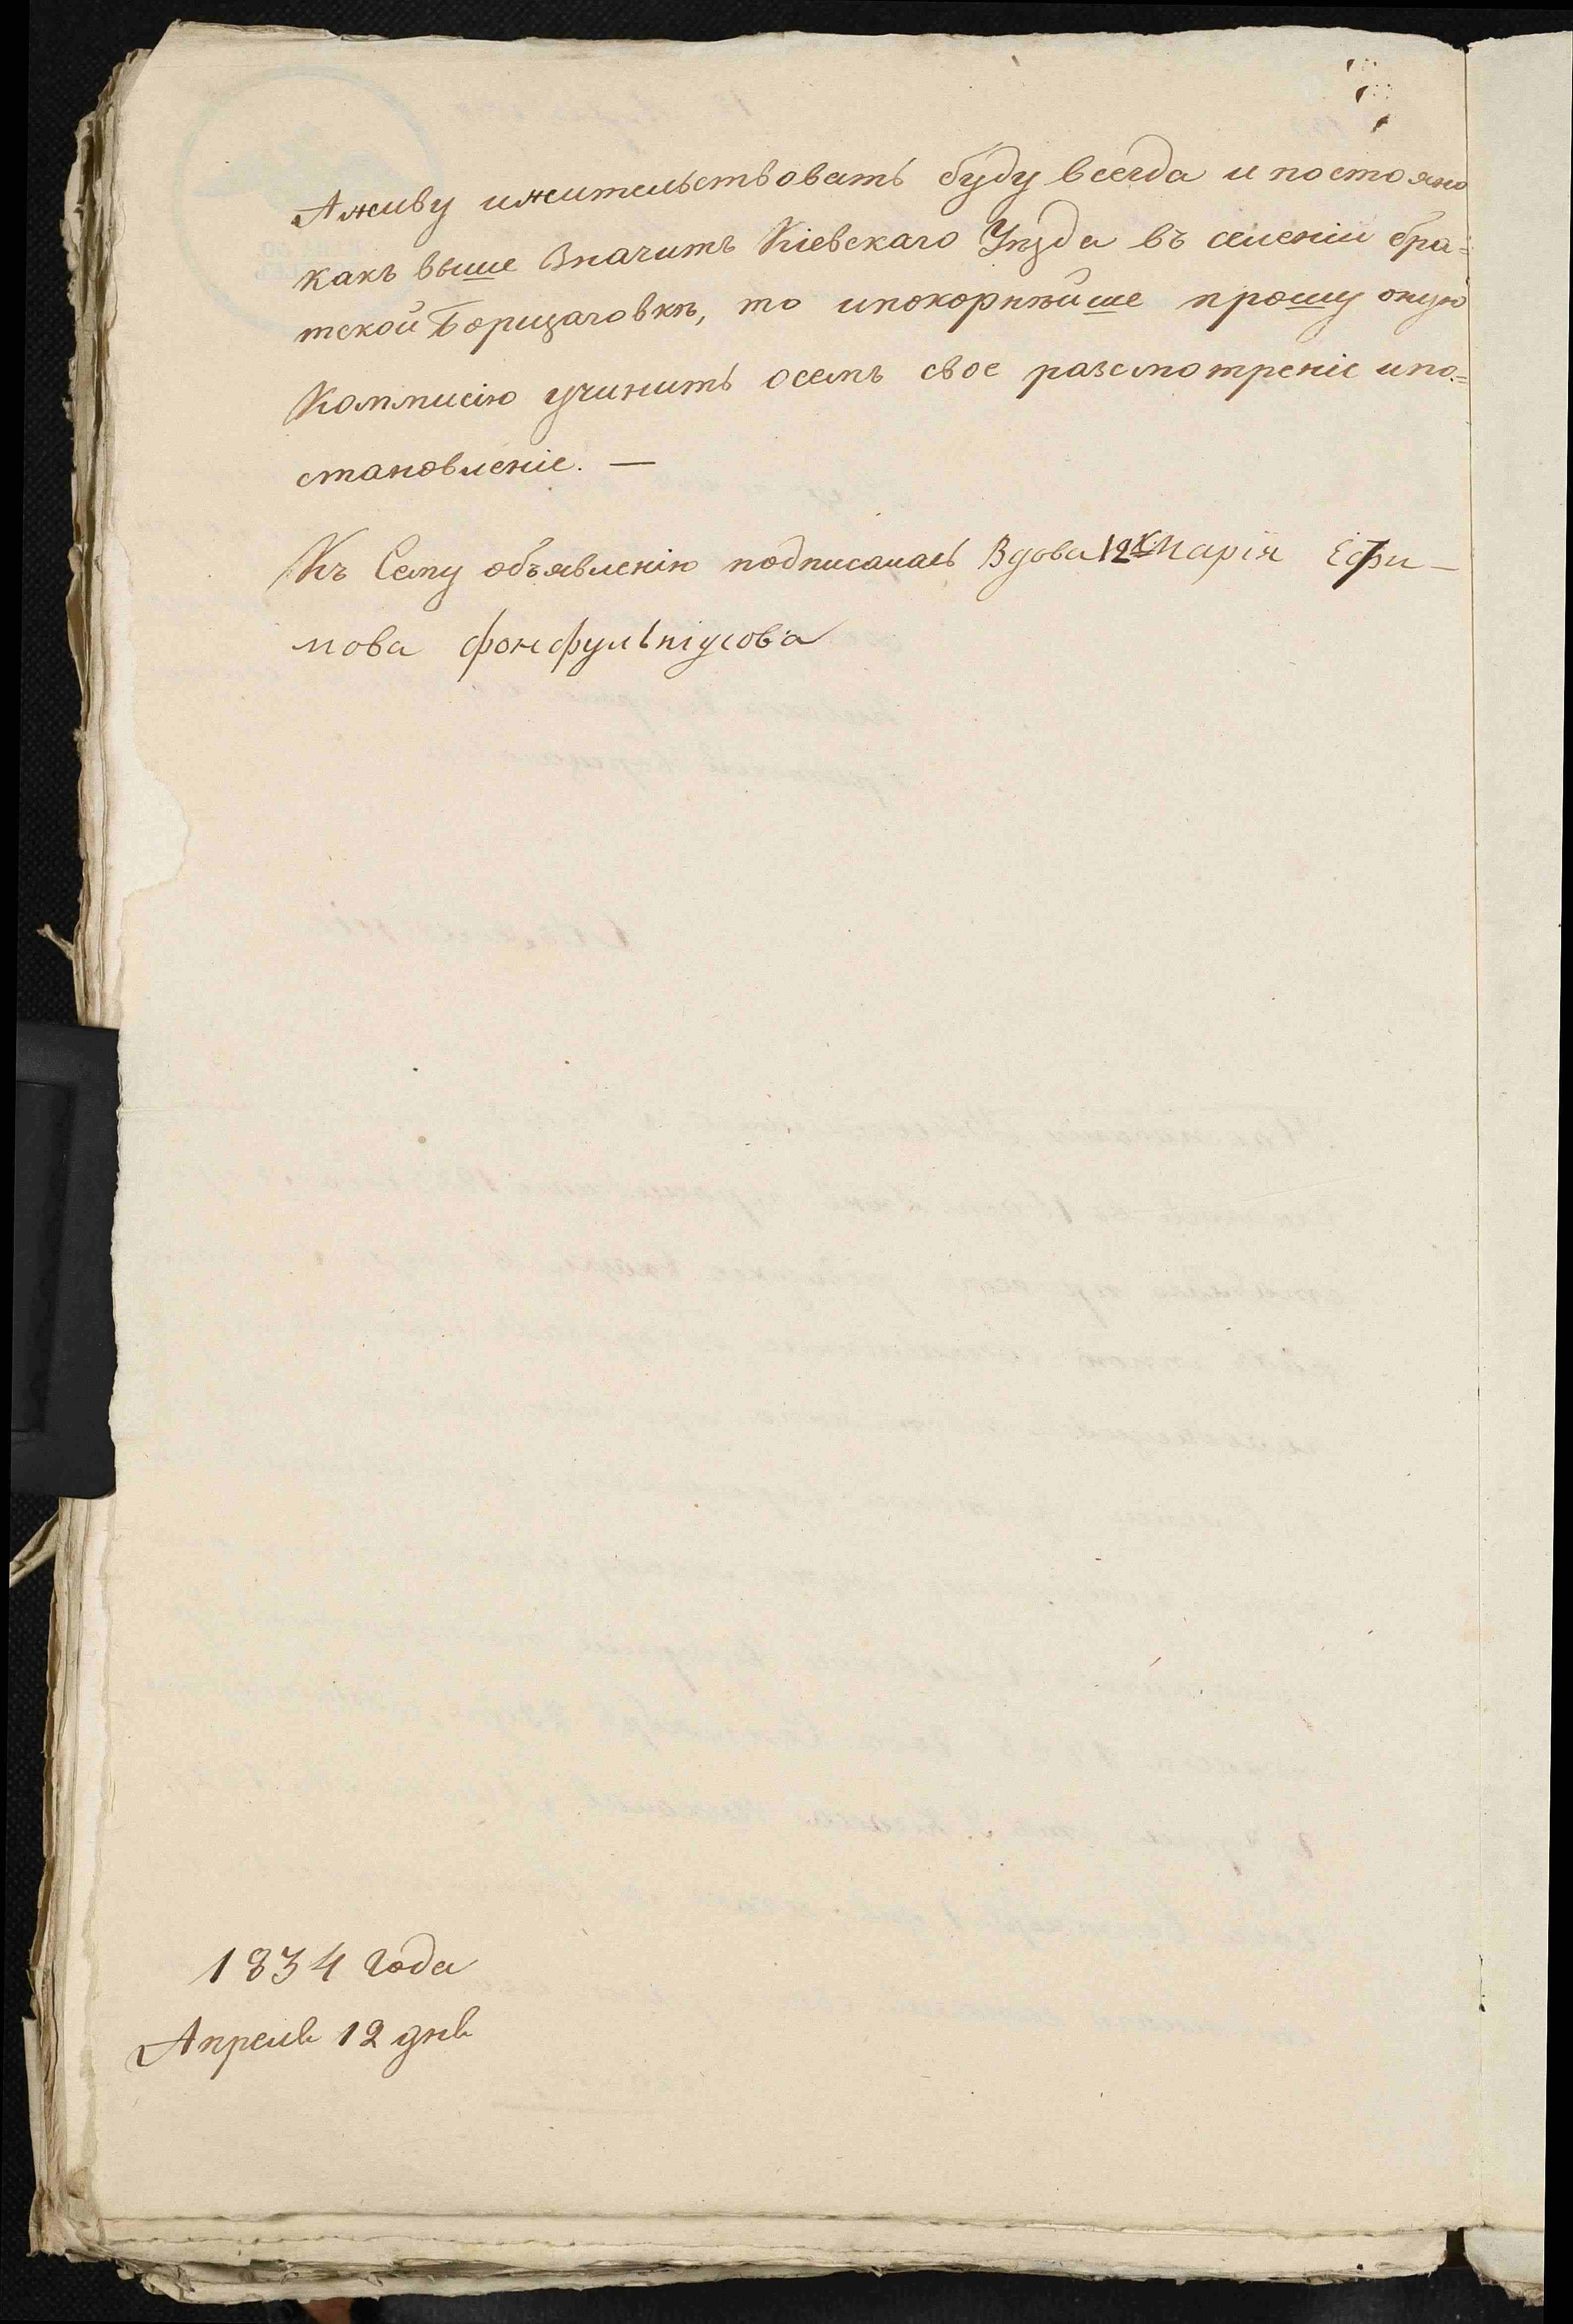 А живу ижительствовать буду всегда и постояно
какъ выше значитъ Кіевскаго Уѣзда въ селеніи бра=
тской Борщаговкѣ, то ипокорнѣйше прошу оную
Коммисію учинить осемъ свое разсмотреніе ипо=
становленіе. —
Къ Сему объявленію подписалась Вдова 12 К: Марія Ефи—
мова фонфульпіусова
1834 года
Апреля 12 дня